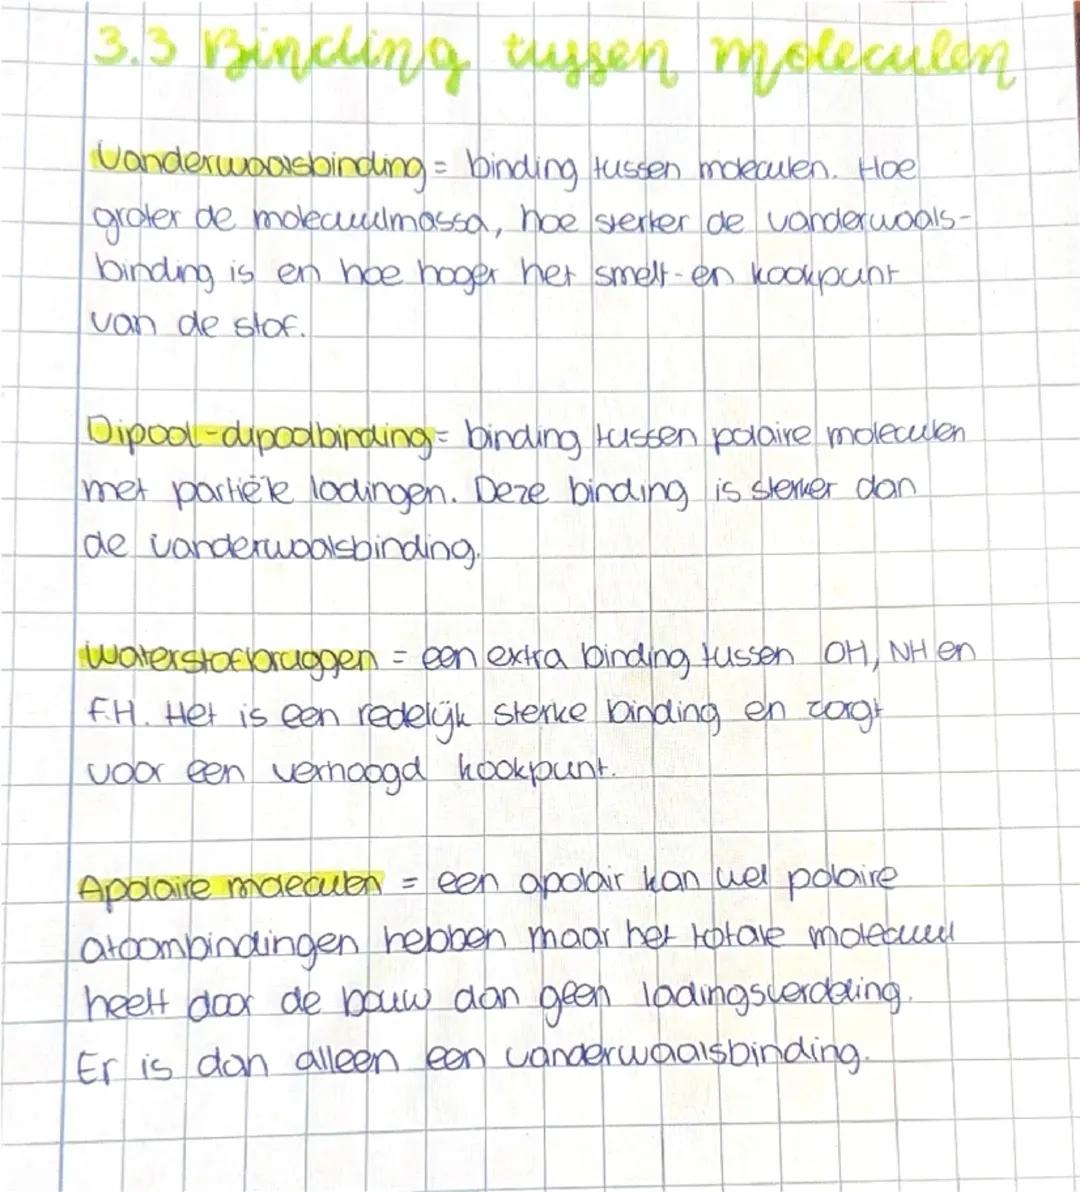 3.3 Binding tussen moleculen
Vanderwaalsbinding = binding tussen moleculen. Hoe
groter de molecuulmassa, hoe sterker de vanderwaals-
binding is en hoe hoger het smelt- en kookpunt
van de stof.
Dipool-dipoolbinding = binding tussen polaire moleculen
met partiële ladingen. Deze binding is sterker dan
de vanderwaalsbinding.
Waterstofbruggen = een extra binding tussen OH, NH en
F.H. Het is een redelijk sterke binding en zorgt
voor een verhoogd kookpunt.
Apolaire moleculen = een apolair kan wel polaire
atoombindingen hebben maar het totale molecuul
heeft door de bouw dan geen ladingsverdeling.
Er is dan alleen een vanderwaalsbinding.